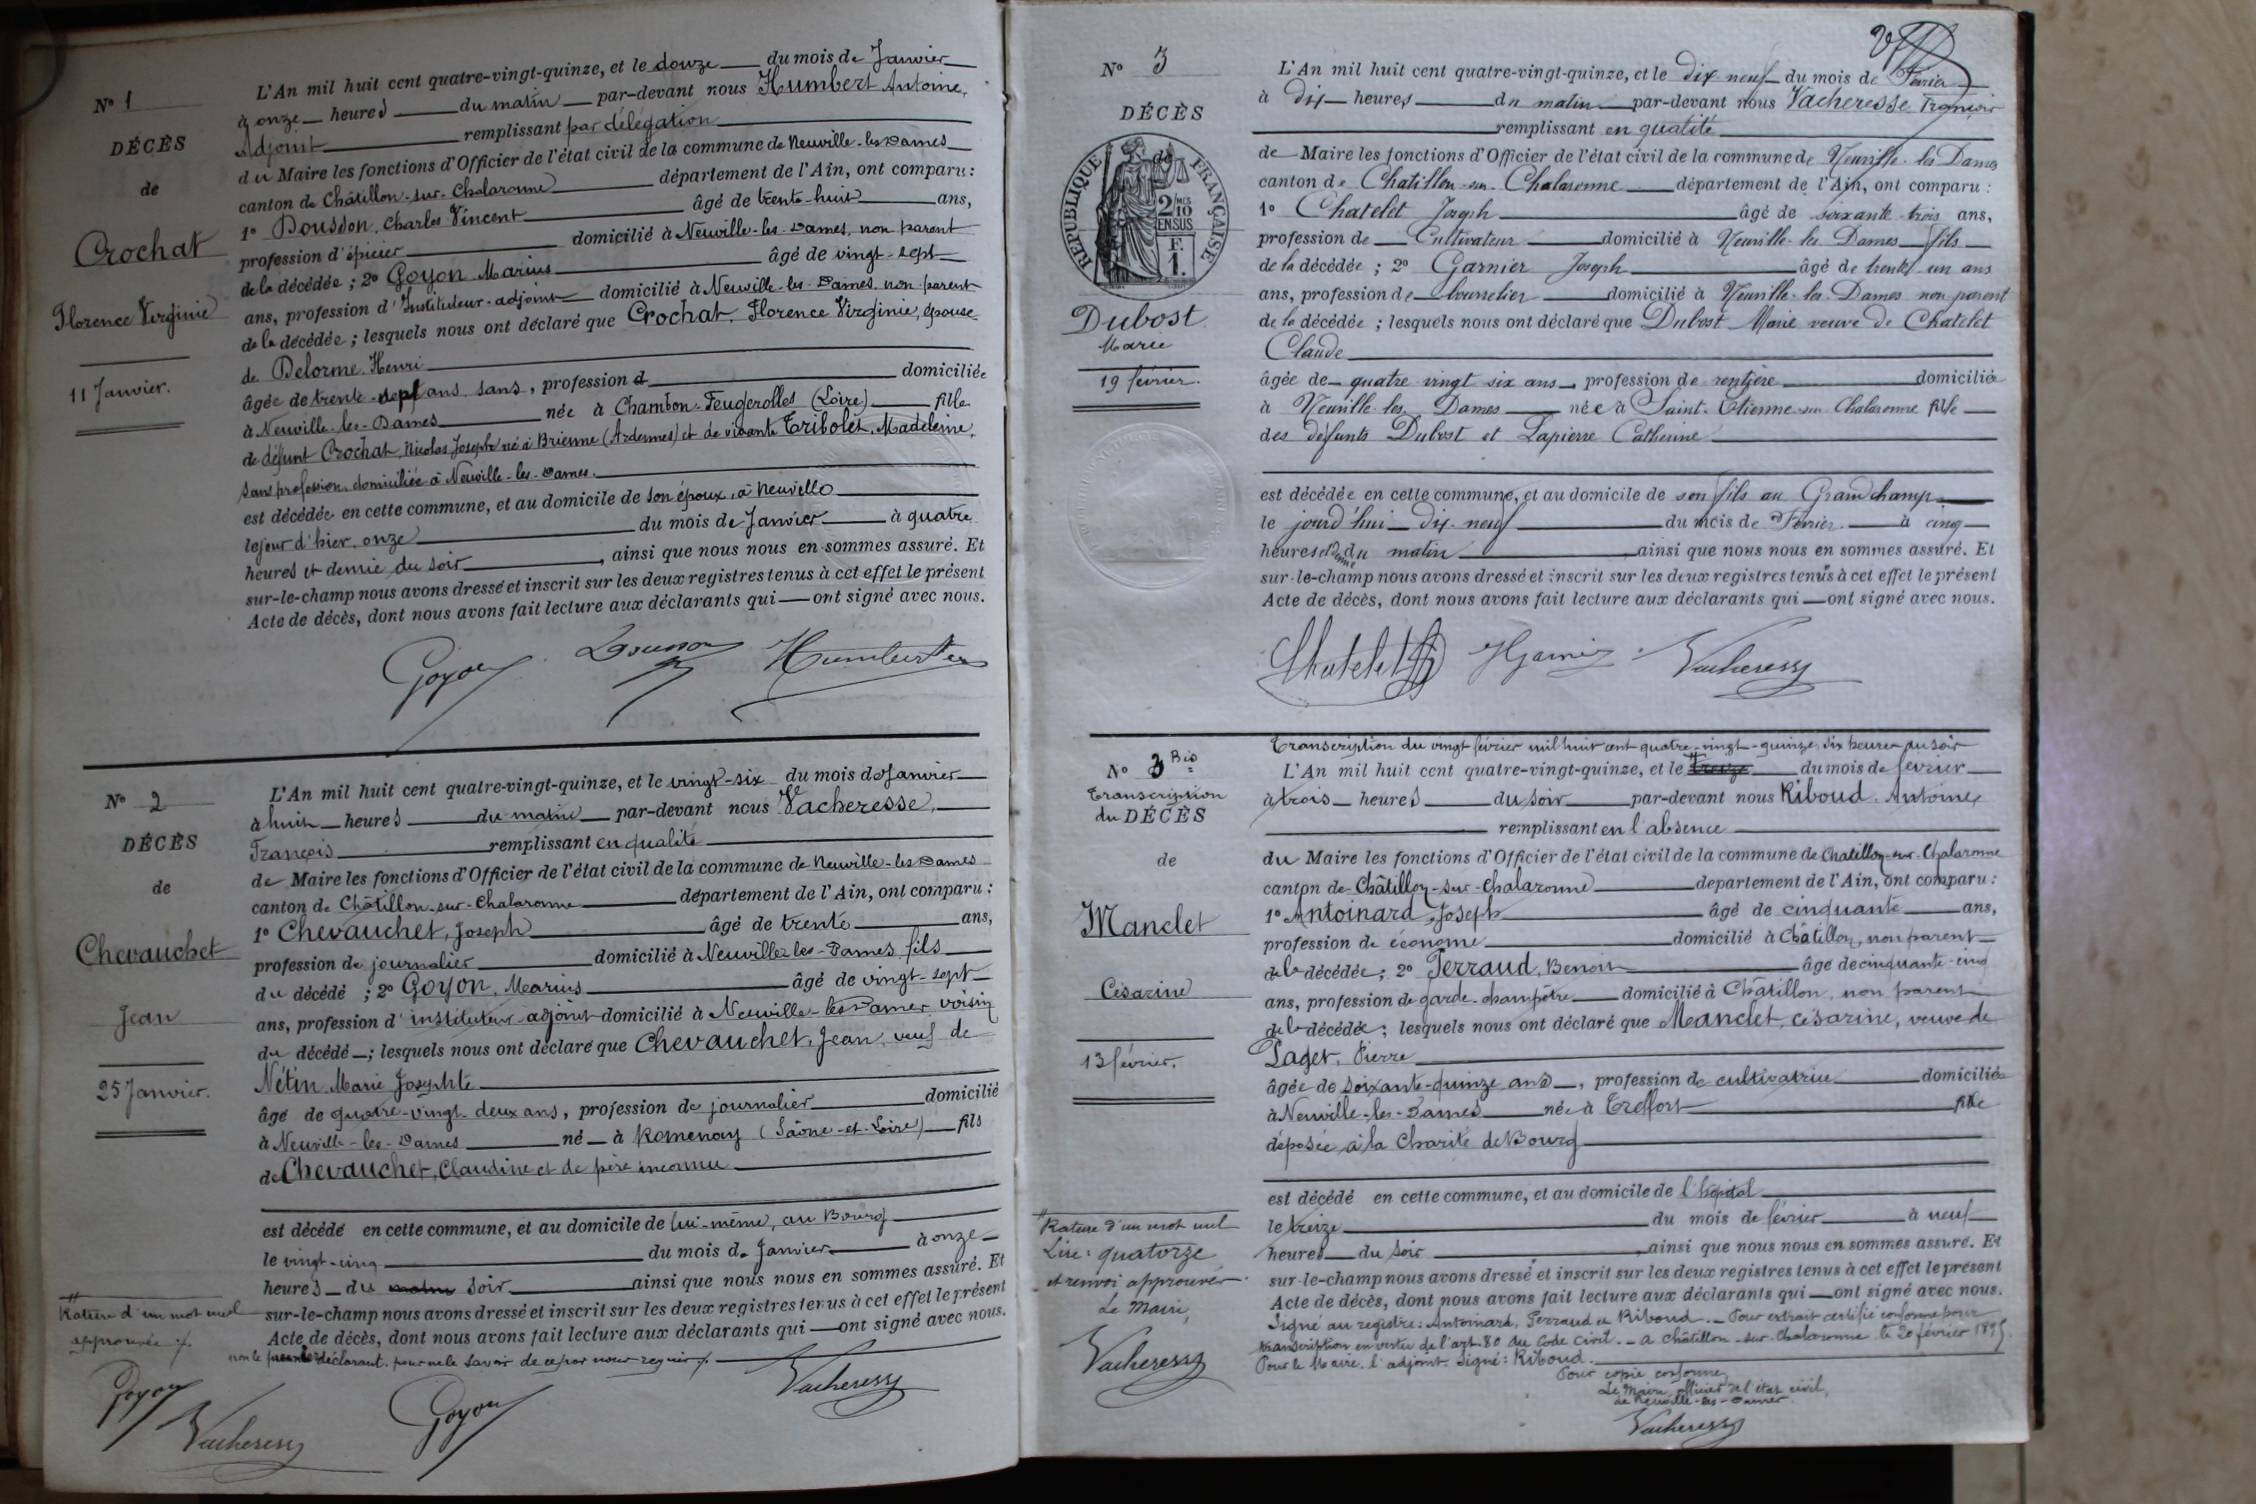 N° 1
DÉCÈS
de
Crochat
Florence Virginie
11 Janvier.
L'An mil huit cent quatre-vingt-quinze, et le douze du mois de Janvier
à onze heures du matin par-devant nous Humbert Antoine,
Adjoint remplissant par délégation
du Maire les fonctions d'Officier de l'état civil de la commune de Neuville-les-Dames
canton de Châtillon-sur-Chalaronne département de l'Ain, ont comparu :
1° Dousson, Charles Vincent âgé de trente-huit ans,
profession d'épicier domicilié à Neuville-les-Dames, non parent
de la décédée ; 2° Goyon Marius âgé de vingt-sept
ans, profession d'Instituteur-adjoint domicilié à Neuville-les-Dames, non parent
de la décédée ; lesquels nous ont déclaré que Crochat, Florence Virginie, épouse
de Delorme Henri
âgée de trente-sept ans sans, profession d domiciliée
à Neuville-les-Dames née à Chambon-Feugerolles (Loire) fille
de défunt Crochat, Nicolas Joseph né à Brienne (Ardennes) et de vivante Tribolet, Madeleine,
sans profession, domiciliée à Neuville-les-Dames.
est décédée en cette commune, et au domicile de son époux, à Neuville
le jour d'hier, onze du mois de Janvier à quatre
heures et demie du soir, ainsi que nous nous en sommes assuré. Et
sur-le-champ nous avons dressé et inscrit sur les deux registres tenus à cet effet le présent
Acte de décès, dont nous avons fait lecture aux déclarants qui — ont signé avec nous.
Goyon Dousson Humbert
N° 2
DÉCÈS
de
Chevauchet
Jean
25 Janvier.
L'An mil huit cent quatre-vingt-quinze, et le vingt-six du mois de Janvier
à huit heures du matin par-devant nous Vacheresse,
François remplissant en qualité
de Maire les fonctions d'Officier de l'état civil de la commune de Neuville-les-Dames
canton de Châtillon-sur-Chalaronne département de l'Ain, ont comparu :
1° Chevauchet, Joseph âgé de trente ans,
profession de journalier domicilié à Neuville-les-Dames fils
du décédé ; 2° Goyon, Marius âgé de vingt-sept
ans, profession d'instituteur-adjoint domicilié à Neuville-les-Dames, voisin
du décédé ; lesquels nous ont déclaré que Chevauchet, Jean, veuf de
Nétin Marie Josephte
âgé de quatre-vingt-deux ans, profession de journalier domicilié
à Neuville-les-Dames né à Romenay (Saône-et-Loire) fils
de Chevauchet, Claudine et de père inconnu
est décédé en cette commune, et au domicile de lui-même, au Bourg
le vingt-cinq du mois de Janvier à onze
heures du matin soir ainsi que nous nous en sommes assuré. Et
sur-le-champ nous avons dressé et inscrit sur les deux registres tenus à cet effet le présent
Acte de décès, dont nous avons fait lecture aux déclarants qui — ont signé avec nous.
non le premier déclarant, pour ne le savoir de ce par nous requis
Rature d'un mot nul
approuvée
Goyon Vacheresse Goyon Vacheresse
N° 3
DÉCÈS
de
RÉPUBLIQUE FRANÇAISE
2/10 EN SUS
F. 1.
Dubost
Marie
19 février.
L'An mil huit cent quatre-vingt-quinze, et le dix neuf du mois de Février
à dix heures du matin par-devant nous Vacheresse François
remplissant en qualité
de Maire les fonctions d'Officier de l'état civil de la commune de Neuville-les-Dames
canton de Chatillon-sur-Chalaronne département de l'Ain, ont comparu :
1° Chatelet Joseph âgé de soixante-trois ans,
profession de Cultivateur domicilié à Neuville-les-Dames fils
de la décédée ; 2° Garnier Joseph âgé de trente un ans
ans, profession de bourrelier domicilié à Neuville-les-Dames non parent
de la décédée ; lesquels nous ont déclaré que Dubost Marie veuve de Chatelet
Claude
âgée de quatre vingt six ans, profession de rentière domiciliée
à Neuville-les-Dames née à Saint-Etienne-sur-Chalaronne fille
des défunts Dubost et Lapierre Catherine
est décédée en cette commune, et au domicile de son fils au Grand champ
le jourd'hui dix neuf du mois de Février à cinq
heures et demie du matin, ainsi que nous nous en sommes assuré. Et
sur-le-champ nous avons dressé et inscrit sur les deux registres tenus à cet effet le présent
Acte de décès, dont nous avons fait lecture aux déclarants qui — ont signé avec nous.
Chatelet J Garnier Vacheresse
N° 3 Bis
Transcription
du DÉCÈS
de
Manclet
Césarine
13 février.
Transcription du vingt février mil huit cent quatre-vingt-quinze, six heures du soir
L'An mil huit cent quatre-vingt-quinze, et le treize du mois de février
à trois heures du soir par-devant nous Riboud Antoine,
remplissant en l'absence
du Maire les fonctions d'Officier de l'état civil de la commune de Chatillon-sur-Chalaronne
canton de Châtillon-sur-Chalaronne département de l'Ain, ont comparu :
1° Antoinard, Joseph âgé de cinquante ans,
profession de économe domicilié à Châtillon, non parent
de la décédée ; 2° Perraud, Benoit âgé de cinquante-cinq
ans, profession de garde-champêtre domicilié à Châtillon, non parent
de la décédée ; lesquels nous ont déclaré que Manclet, Césarine, veuve de
Paget, Pierre
âgée de soixante-quinze ans, profession de cultivatrice domiciliée
à Neuville-les-Dames née à Treffort fille
déposée à la Charité de Bourg
est décédé en cette commune, et au domicile de l'hôpital
le treize du mois de février à neuf
heures du soir, ainsi que nous nous en sommes assuré. Et
sur-le-champ nous avons dressé et inscrit sur les deux registres tenus à cet effet le présent
Acte de décès, dont nous avons fait lecture aux déclarants qui — ont signé avec nous.
Signé au registre : Antoinard, Perraud et Riboud. — Pour extrait certifié conforme pour
transcription en vertu de l'art. 80 du Code Civil. — A Châtillon-sur-Chalaronne le 20 février 1895.
Pour le Maire, l'adjoint signé : Riboud.
Pour copie conforme,
Le Maire, officier de l'état civil,
de Neuville-les-Dames.
Vacheresse
Rature d'un mot nul
Lire : quatorze
et renvoi approuvés
Le Maire,
Vacheresse